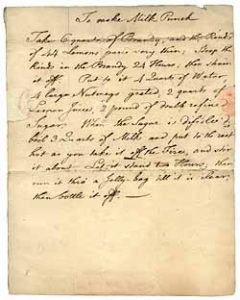 To make Milk Punch
Take 6 quarts of Brandy, and the Rinds
of 44 Lemons pared very thin; Steep the
Rinds in the Brandy 24 Hours, then strain
it off. Put to it 4 Quarts of Water,
4 large Nutmegs grated, 2 quarts of
Lemon Juice, 2 pound of double refined
Sugar. When the Sugar is dissolv'd
boil 3 Quarts of Milk and put to the rest
hot as you take it off the Fire, and stir
it about. Let it stand two Hours, then
run it thro' a Jelly-bag till it is clear,
then bottle it off. —